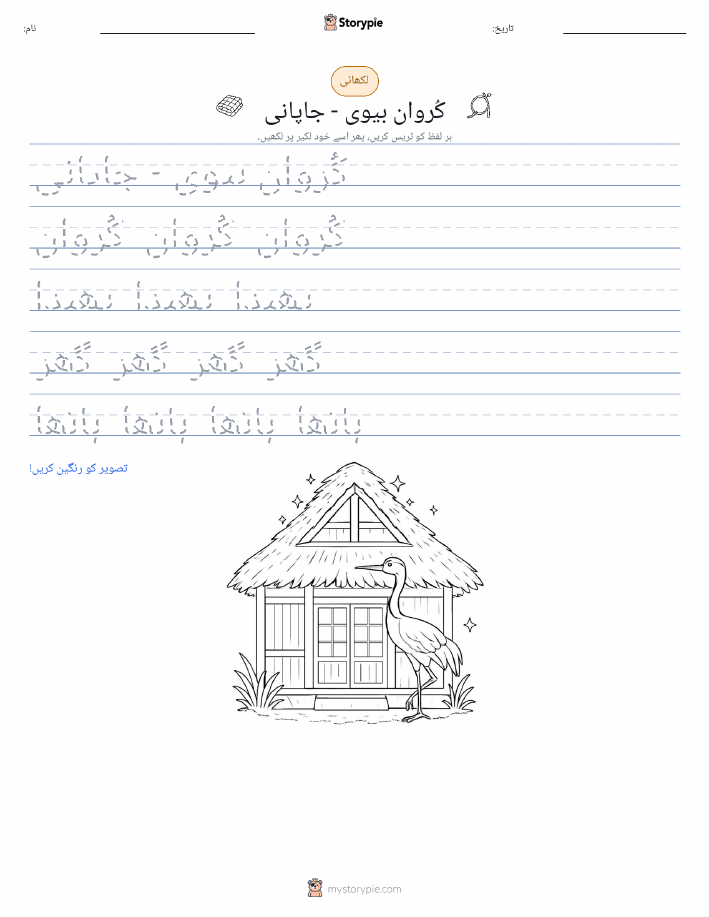 نام:
Storypie
تاریخ:
لکھانی
کُروان بیوی - جاپانی
ہر لفظ کو ٹریس کریں، پھر اسے خود لکیر پر لکھیں۔
کُروان بیوی - جاپانی
کُروان کُروان کُروان
پھندا پھندا پھندا
گھر گھر گھر گھر
باندھا باندھا باندھا باندھا
تصویر کو رنگین کریں!
mystorypie.com